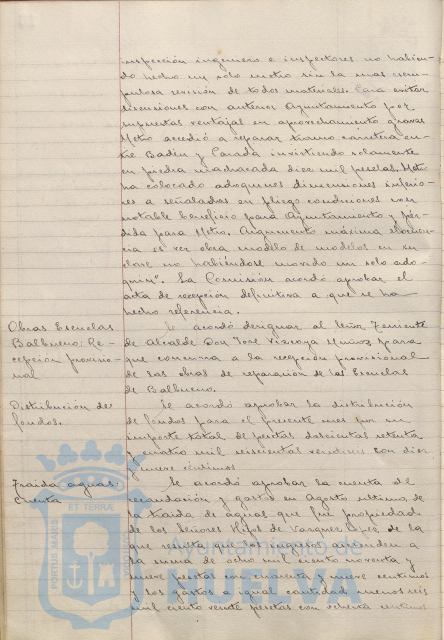 inspección ingeniero e inspectores no habien-
do hecho un solo metro sin la mas escru-
pulosa revisión de todos materiales. Para evitar
discusiones con anterior Ayuntamiento por
supuestas ventajas en aprovechamiento gravas
Metro accedió a reparar tramo carretera en-
tre Badén y Parada invirtiendo solamente
en piedra machacada diez mil pesetas. Metro
ha colocado adoquines dimensiones inferio-
res a señaladas en pliego condiciones con
notable beneficio para Ayuntamiento y pér-
dida para Metro. Argumento máxima elocuen-
cia es ver obra modelo de modelos en su
clase no habiéndose movido un solo ado-
quin". La Comisión acordó aprobar el
acta de recepción definitiva a que se ha
hecho referencia.
Obras Escuelas
Balbueno; Re-
cepción provisio-
nal
Se acordó designar al Teniente
de Alcalde Don José Vizcaya Muñoz para
que concurra a la recepción provisional
de las obras de reparación de las Escuelas
de Balbueno.
Distribución de
fondos.
Se acordó aprobar la distribución
de fondos para el presente mes por un
importe total de pesetas doscientas setenta
y cuatro mil seiscientas con diez
y nueve céntimos
Traida aguas:
Cuenta
Se acordó aprobar la cuenta de
recaudación y gastos en Agosto último, de
la traida de aguas que fué propiedad
de los Señores Hijos de Vazquez Lopez, de la
que resulta que los ingresos ascienden a
la suma de ocho mil ciento noventa y
nueve pesetas con cincuenta y nueve centimos
y los gastos a igual cantidad menos seis
mil ciento veinte pesetas con ochenta centimos
PORTUS MARIS
ET TERRA
CUSTODIA
Ayuntamiento de
HUELVA